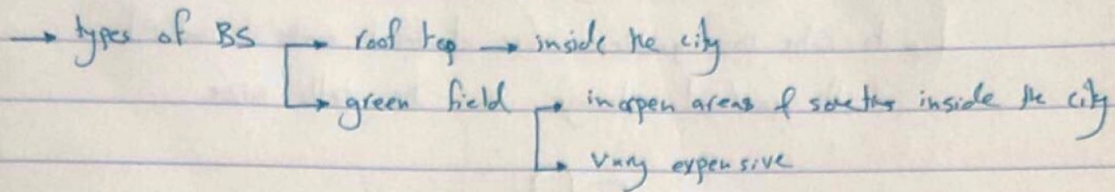 → types of BS → roof top → inside the city
→ green field → in open areas & some times inside the city
→ vary expensive